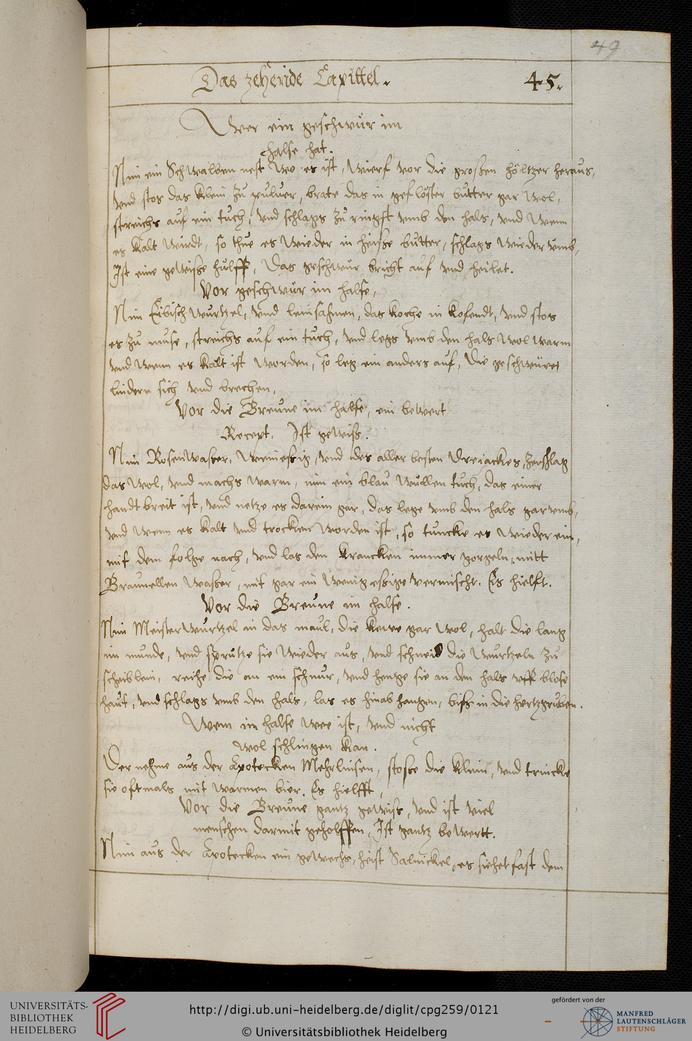 49
Das zehende Capittel. 45.
Wer ein geschwür im
halse hat.
Nim ein Schwalben nest wo es ist, wierf vor die grosen höltzer heraus,
vnd stos das klein zu puluer, brate das in geflöster butter gar wol,
streichs auf ein tuch, vnd schlags zu ringst vmb den hals, vnd wenn
es kalt wirdt, so thue es wieder in heisse butter, schlags wieder vmb,
Ist eine gewisse hülff, Das geschwür bricht auf vnd heilet.
Vor geschwür im halse,
Nim Eibisch wurtzel, vnd leinsahmen, das koche in kofendt, vnd stos
es zu muse, streichs auf ein tuch, vnd legs vmb den hals wol warm
vnd wenn es kalt ist worden, so leg ein anders auf, die geschwüre
lindern sich vnd brechen,
Vor die Breune im halse, ein bewert
Recept. Ist gewiss.
Nim Rosenwasser, weinessig, vnd des aller besten Dreiackes, zerschlag
das wol, vnd machs warm, nim ein blau wullen tuch, das einer
handt breit ist, vnd netze es darein gar, das lege vmb den hals gar vmb,
vnd wenn es kalt vnd trocken worden ist, so tuncke es wieder ein,
mit dem folge nach, vnd las den krancken immer gorgeln, mitt
Braunellen wasser, mit gar ein wenig essige vermischt. Es hielft.
Vor die Breune im halse.
Nim Meisterwurtzel in das maul, die kewe gar wol, halt die lang
im munde, vnd sprütze sie wieder aus, vnd schneid die wurtzeln zu
scheiblein, reihe die an ein schnur, vnd henge sie an den hals vff blose
haut, vnd schlags vmb den hals, las es hinab hangen, biss in die hertzgruben.
Wem im halse wee ist, vnd nicht
wol schlingen kan.
Der nehme aus der Apotecken Mehrlinsen, stosse die klein, vnd trincke
sie oftmals mit warmen bier. Es hielfft,
Vor die Breune gantz gewiss, vnd ist viel
menschen darmit geholffen, Ist gantz bewertt.
Nim aus der Apotecken ein gewechs, heist Salnickel, es siehet fast dem
UNIVERSITÄTS-
BIBLIOTHEK
HEIDELBERG
http://digi.ub.uni-heidelberg.de/diglit/cpg259/0121
© Universitätsbibliothek Heidelberg
gefördert von der
MANFRED
LAUTENSCHLÄGER
STIFTUNG